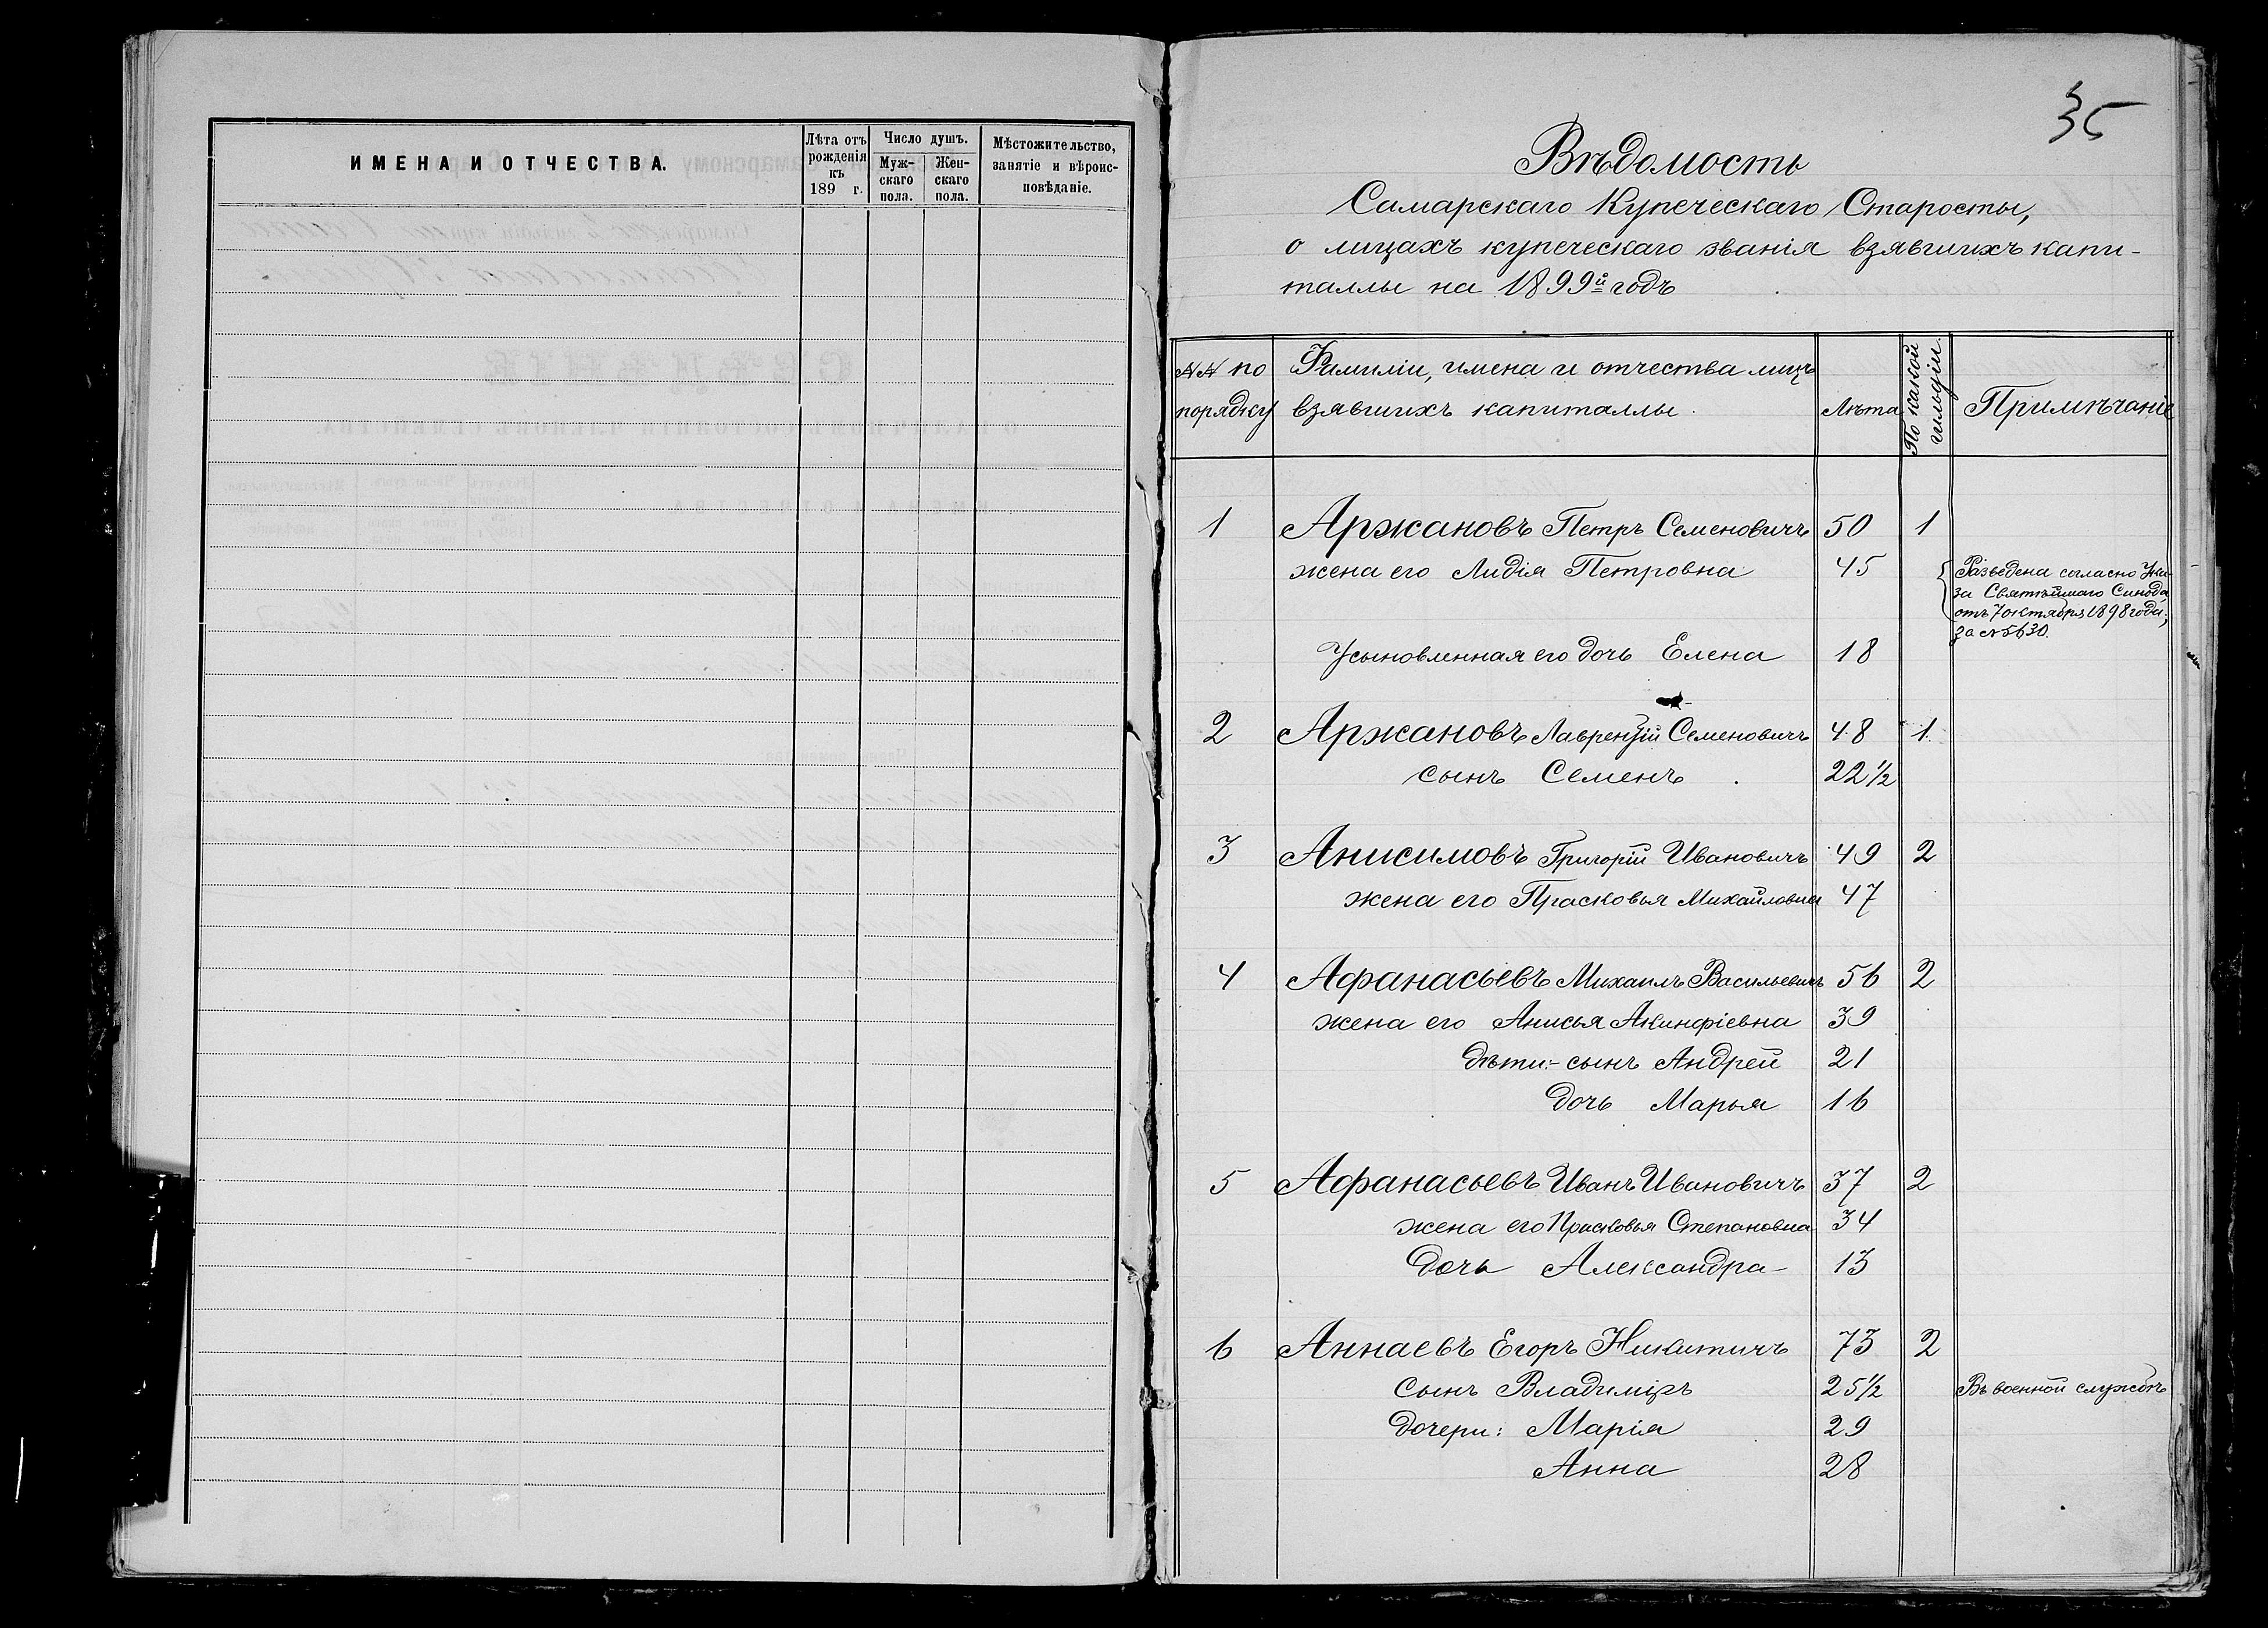 ИМЕНА И ОТЧЕСТВА.
Лѣта отъ рожденія къ 189 г.
Число душъ.
Мужскаго пола.
Женскаго пола.
Мѣстожительство, занятіе и вѣроисповѣданіе.
35
Вѣдомость
Самарскаго Купеческаго Старосты,
о лицахъ купеческаго званія взявшихъ капи-
таллы на 1899й годъ
№№ по порядку
Фамиліи, имена и отчества лицъ
взявшихъ капиталлы.
Лѣта
По какой гильдіи.
Примѣчаніе
1 Аржановъ Петръ Семеновичъ 50 1
жена его Лидія Петровна 45
Разведена согласно Ука-
за Святѣйшаго Синода,
отъ 7 октября 1898 года,
за № 5630.
Усыновленная его дочь Елена 18
2 Аржановъ Лаврентій Семеновичъ 48 1
сынъ Семенъ 22½
3 Анисимовъ Григорій Ивановичъ 49 2
жена его Прасковья Михайловна 47
4 Афанасьевъ Михаилъ Васильевичъ 56 2
жена его Анисья Акинфіевна 39
дѣти:- сынъ Андрей 21
дочь Марья 16
5 Афанасьевъ Иванъ Ивановичъ 37 2
жена его Прасковья Степановна 34
дочь Александра 13
6 Аннаевъ Егоръ Никитичъ 73 2
Сынъ Владиміръ 25½ Въ военной службѣ
дочери: Марія 29
Анна 28